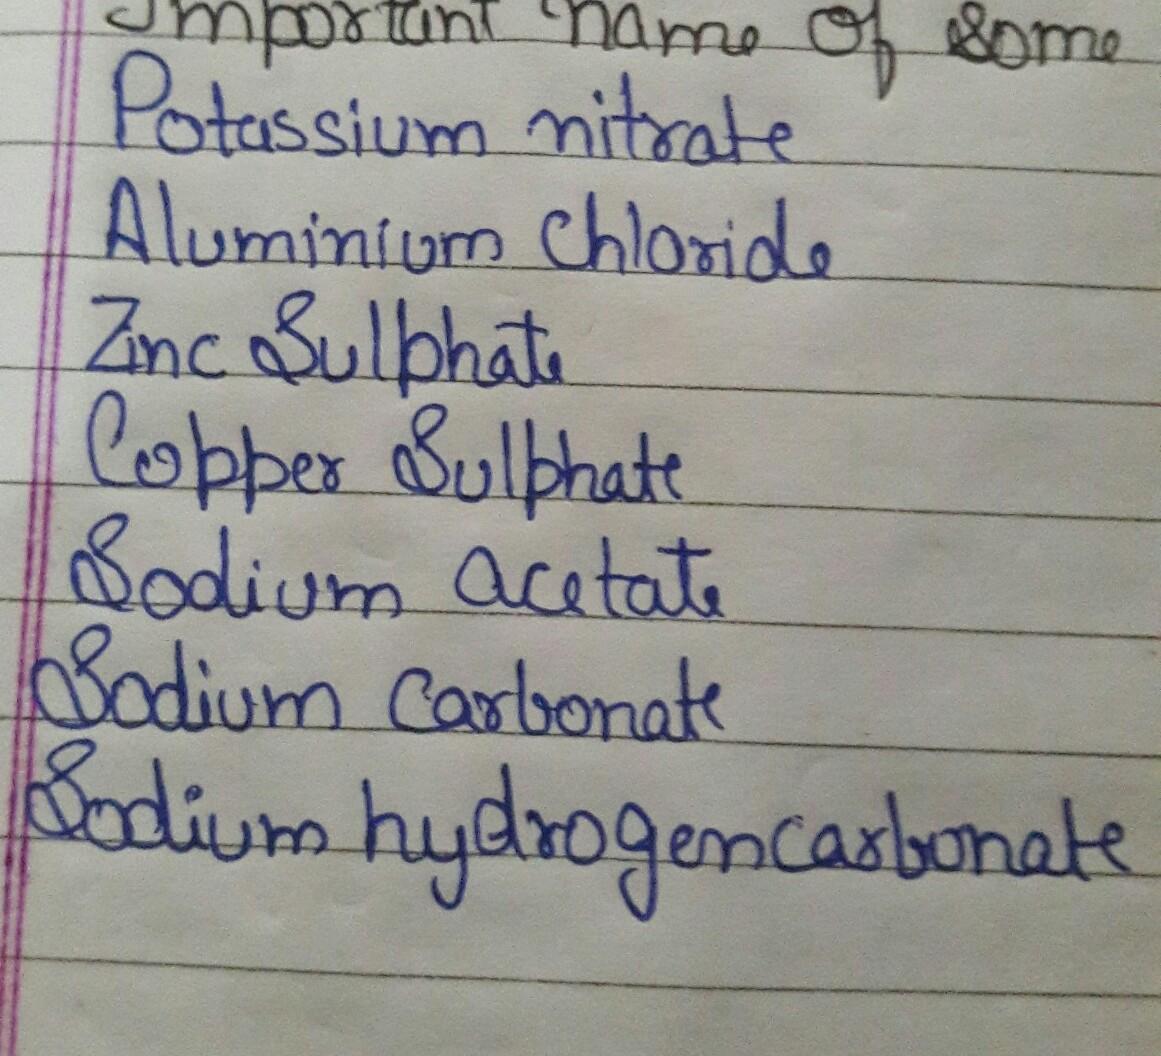 Important name of some
Potassium nitrate
Aluminium Chloride
Zinc Sulphate
Copper Sulphate
Sodium acetate
Sodium carbonate
Sodium hydrogencarbonate